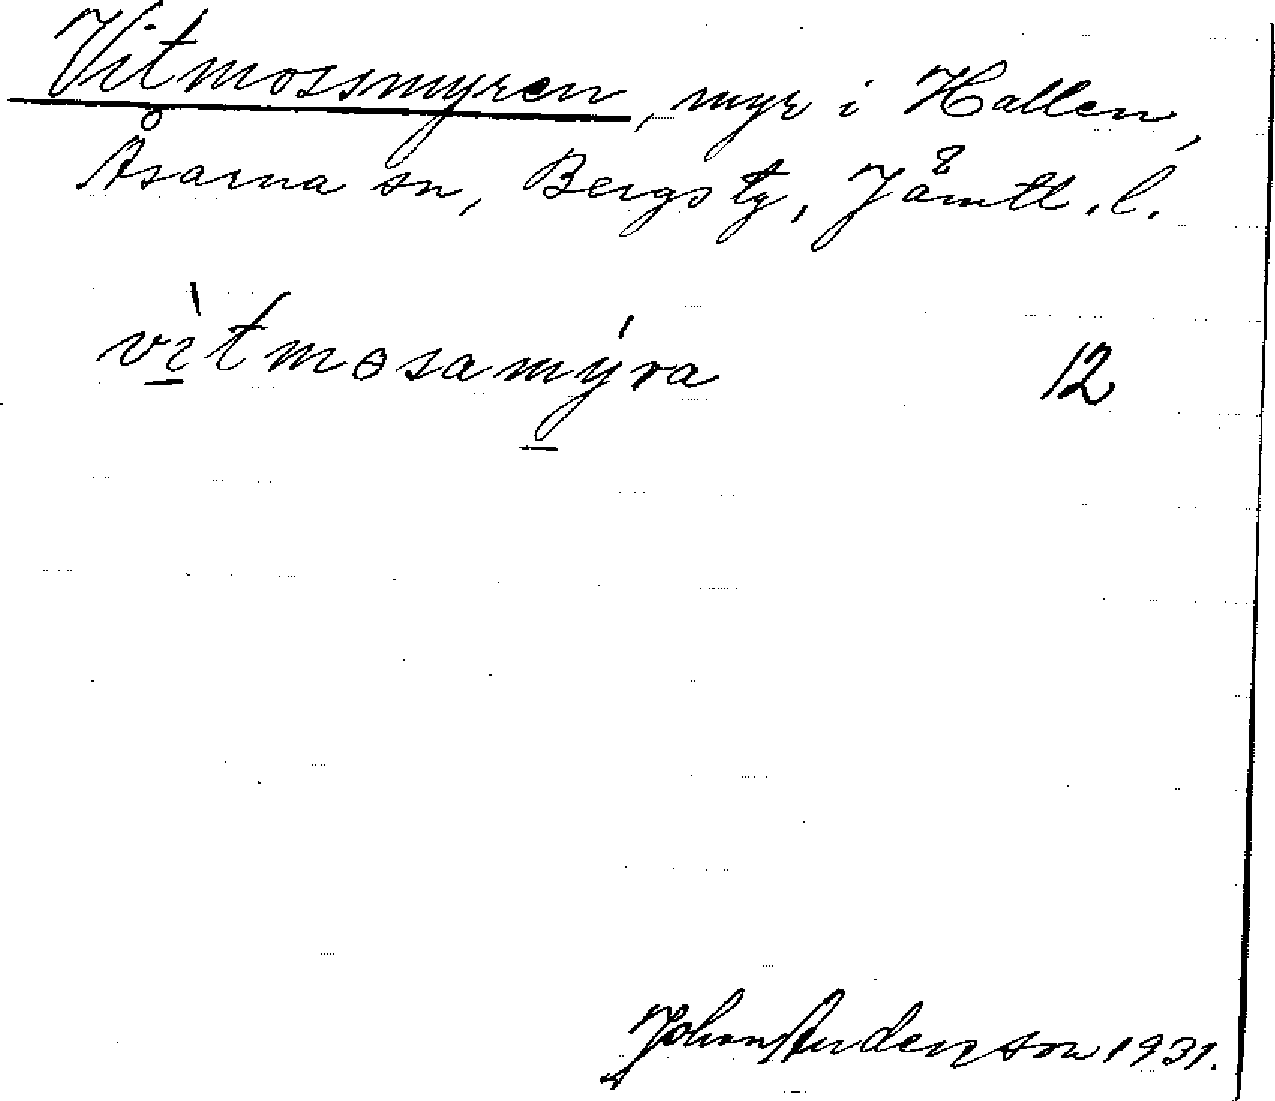 Vitmossmyren, myr i Hallen,
Åsarna sn, Bergs tg, Jämtl. l.
vìtmosamýra 12
Johan Anderson 1931.